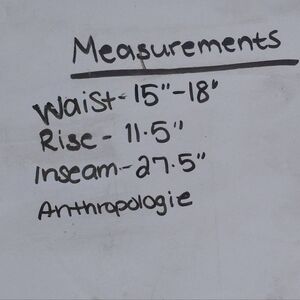 Measurements
Waist-15"-18"
Rise - 11.5"
Inseam-27.5"
Anthropologie